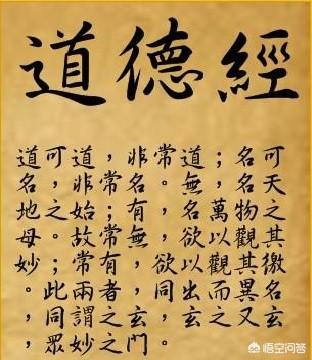 道德經
道可道，非常道；名可
名，非常名。無名天
地之始；有名萬物之
母。故常無，欲以觀其
妙；常有，欲以觀其徼
。此兩者，同出而異名
，同謂之玄。玄之又玄
，眾妙之門。
悟空问答